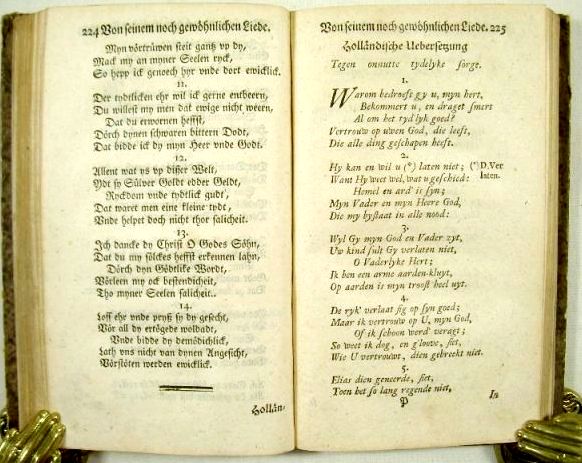 224 Von seinem noch gewöhnlichen Liede.
Myn vörtrüwen steit gantz up dy,
Mack my an myner Seelen ryck,
So hepp ick genoech hyr vnde dort ewicklick.
11.
Der tydtlicken ehr wil ick gerne entbeern,
Du willest my men dat ewige nicht weern,
Dat du erworuen heffst,
Dörch dynen schwaren bittern Dodt,
Dat bidde ick dy myn Heer vnde Godt.
12.
Allent wat ys vp disser Welt,
Ydt sy Sülver Goldt edder Geldt,
Ryckdom vnde tydtlick gudt,
Dat waret men eine kleine tydt,
Vnde helpet doch nicht thor salicheit.
13.
Jch dancke dy Christ O Godes Söhn,
Dat du my sölckes heffst erkennen lahn,
Dörch dyn Gödtlike Wordt,
Vörleen my ock bestendicheit,
Tho myner Seelen salicheit.
14.
Loff ehr vnde pryß sy dy gesecht,
Vör all dy ertögede woldadt,
Vnde bidde dy demödichlick,
Lath vns nicht van dynen Angesicht,
Vörstöten werden ewicklick.
Hollän-
Von seinem noch gewöhnlichen Liede. 225
Holländische Uebersetzung
Tegen onnutte tydelyke sorge.
1.
Warom bedroeft gy u, myn hert,
Bekommert u, en draget smert
Al om het tydlyk goed?
Vertrouw op uwen God, die leeft,
Die alle ding geschapen heeft.
2.
Hy kan en wil u (*) laten niet; (*) D. Ver
Want Hy weet wel, wat u geschied: laten.
Hemel en ard' is syn;
Myn Vader en myn Heere God,
Die my bystaat in alle nood:
3.
Wyl Gy myn God en Vader zyt,
Uw kind sult Gy verlaten niet,
O Vaderlyke Hert;
Ik ben een arme aarden-kluyt,
Op aarden is myn troost heel uyt.
4.
De ryk' verlaat sig op syn goed;
Maar ik vertrouw op U, myn God,
Of ik schoon werd' veragt;
So weet ik dog, en g'loove, siet,
Wie U vertrouwt, dien gebreekt niet.
5.
Elias dien geneerde, siet,
Toen het so lang regende niet,
P In